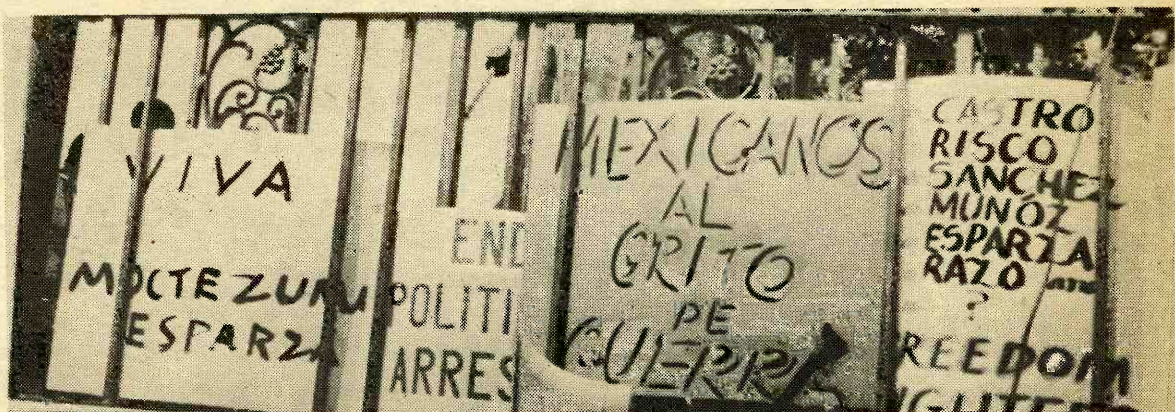 VIVA
MOCTEZUMU
ESPARZA
END
POLITI
ARRES
MEXICANOS
AL
GRITO
DE
GUERRA
CASTRO
RISCO
SANCHEZ
MUNOZ
ESPARZA
RAZO
?
REEDOM